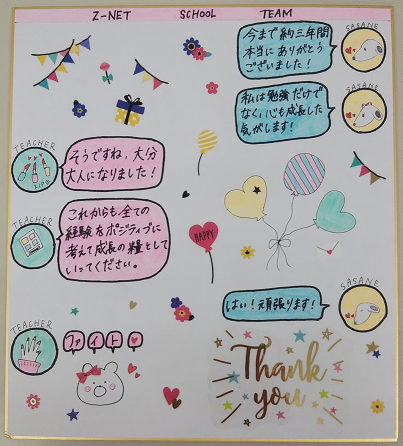 Z-NET SCHOOL TEAM
SASANE
今まで約三年間
本当にありがとう
ございました!
SASANE
私は勉強だけで
なく、心も成長した
気がします!
TEACHER
そうですね、大分
大人になりました!
LIPS
TEACHER
これからも全ての
経験をポジティブに
考えて成長の糧として
いってください。
HAPPY
SASANE
はい!頑張ります!
TEACHER
ファイト!
Thank
you